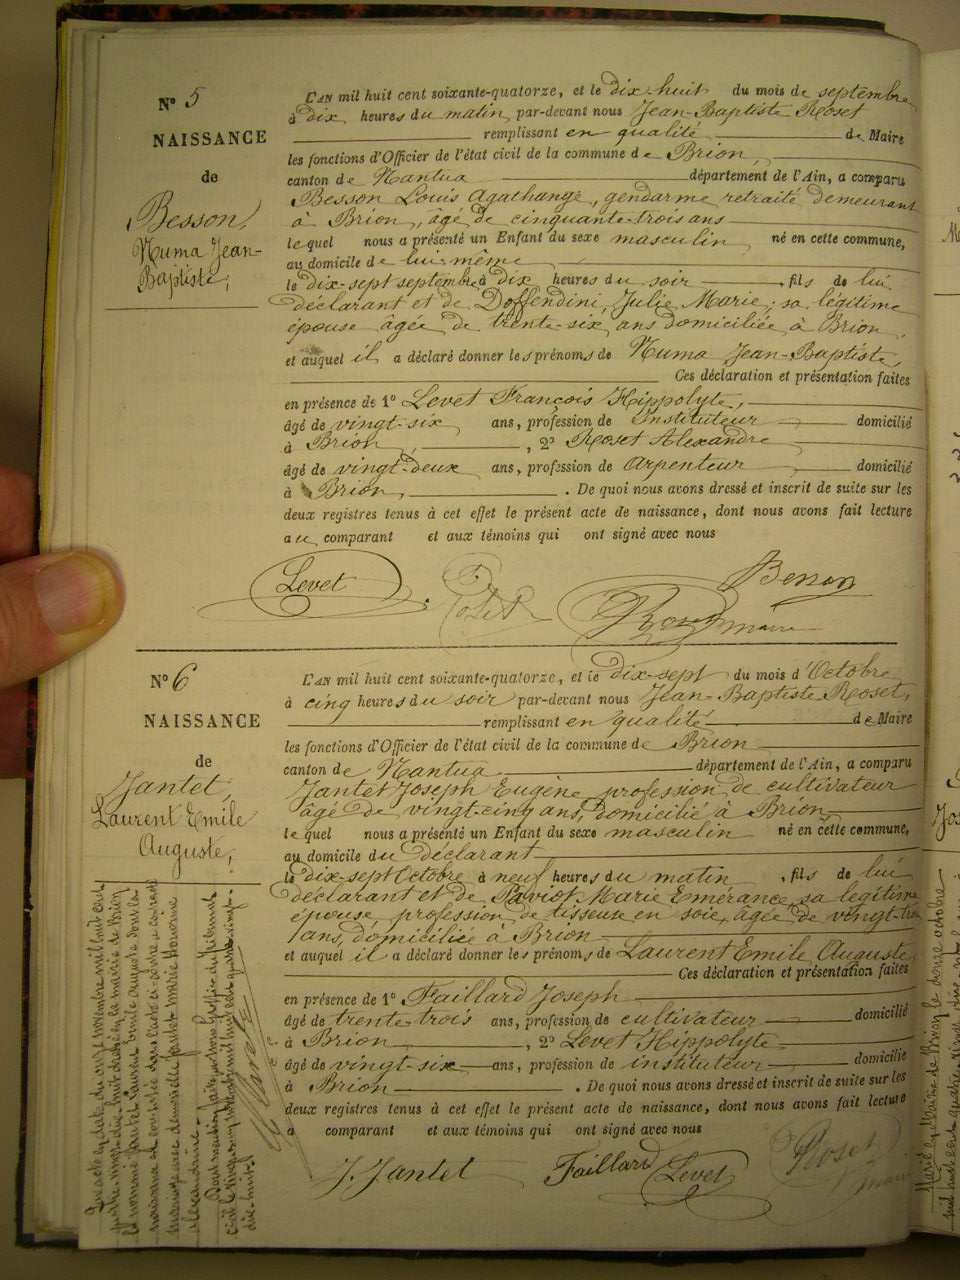 N° 5
NAISSANCE
de
Besson,
Numa Jean-
Baptiste,
L'AN mil huit cent soixante-quatorze, et le dix-huit du mois de septembre
à dix heures du matin par-devant nous Jean-Baptiste Roset
remplissant en qualité de Maire
les fonctions d'Officier de l'état civil de la commune de Brion,
canton de Nantua département de l'Ain, a comparu
Besson Louis Agathange, gendarme retraité demeurant
à Brion, âgé de cinquante-trois ans
lequel nous a présenté un Enfant du sexe masculin né en cette commune,
au domicile de lui-même
le dix-sept septembre à dix heures du soir, fils de lui
déclarant et de Doffendini, Julie Marie, sa légitime
épouse âgée de trente-six ans domiciliée à Brion,
et auquel il a déclaré donner les prénoms de Numa Jean-Baptiste,
Ces déclaration et présentation faites
en présence de 1° Levet François Hippolyte,
âgé de vingt-six ans, profession de Instituteur domicilié
à Brion, 2° Roset Alexandre
âgé de vingt-deux ans, profession de Arpenteur domicilié
à Brion, . De quoi nous avons dressé et inscrit de suite sur les
deux registres tenus à cet effet le présent acte de naissance, dont nous avons fait lecture
au comparant et aux témoins qui ont signé avec nous
Levet
Besson
Roset maire
N° 6
NAISSANCE
de
Jantet,
Laurent Emile
Auguste,
L'AN mil huit cent soixante-quatorze, et le dix-sept du mois d'Octobre
à cinq heures du soir par-devant nous Jean-Baptiste Roset,
remplissant en qualité de Maire
les fonctions d'Officier de l'état civil de la commune de Brion
canton de Nantua département de l'Ain, a comparu
Jantet Joseph Eugène profession de cultivateur
âgé de vingt-cinq ans, domicilié à Brion
lequel nous a présenté un Enfant du sexe masculin né en cette commune,
au domicile du déclarant
le dix-sept Octobre à neuf heures du matin, fils de lui
déclarant et de Paviot Marie Emérance, sa légitime
épouse, profession de tisseuse en soie, âgée de vingt-trois
ans, domiciliée à Brion
et auquel il a déclaré donner les prénoms de Laurent Emile Auguste
Ces déclaration et présentation faites
en présence de 1° Faillard Joseph
âgé de trente-trois ans, profession de cultivateur domicilié
à Brion, 2° Levet Hippolyte
âgé de vingt-six ans, profession de instituteur domicilié
à Brion . De quoi nous avons dressé et inscrit de suite sur les
deux registres tenus à cet effet le présent acte de naissance, dont nous avons fait lecture
a comparant et aux témoins qui ont signé avec nous
J. Jantet
Faillard
Levet
Roset maire
en date du onze novembre mil huit cent
quatre vingt-dix-huit dressé en la mairie de Brion
le nommé Jantet Laurent Emile Auguste dont la
naissance est constatée dans l'acte ci-contre a contracté
mariage avec demoiselle Jantet Marie Honorine
Alexandrine.
Dont mention faite par nous Greffier du Tribunal
civil le vingt
dix-huit
Marié en Mairie de Brion le douze octobre
mil huit cent quatre vingt dix